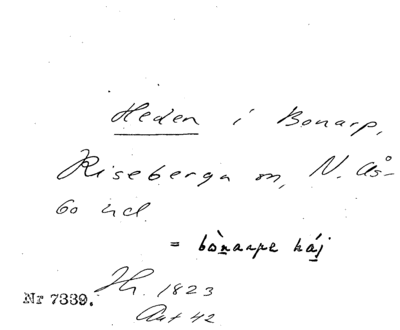 Heden i Bonarp,
Riseberga sn, N. Ås-
bo hd.
= bònarpe háj
Nr 7339. Hr. 1823
Aut 42